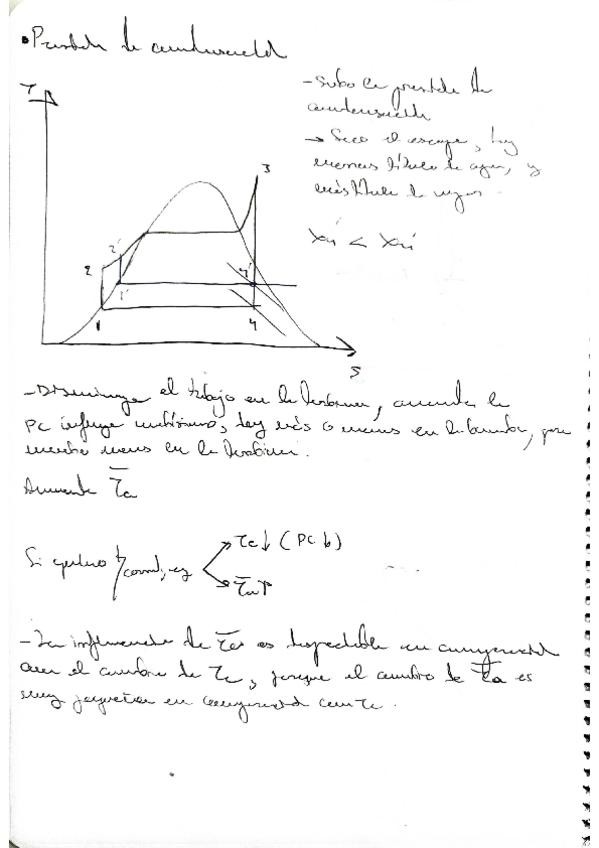 • Presión de condensación
T
- Subo la presión de
condensación
→ Seco el escape, hay
menos título de agua, y
más título de vapor.
3
2'
2
4'
1'
1
4
S
- Disminuye el trabajo en la turbina, aumentar la
PC influye muchísimo, hay más o menos en la bomba, pero
mucho menos en la turbina.
Aumenta T̄a
Si quiero
Tc↓ (PC↓)
T̄a↑
- La influencia de T̄a es despreciable en comparación
con el cambio de Tc, porque el cambio de T̄a es
muy pequeño en comparación con Tc.